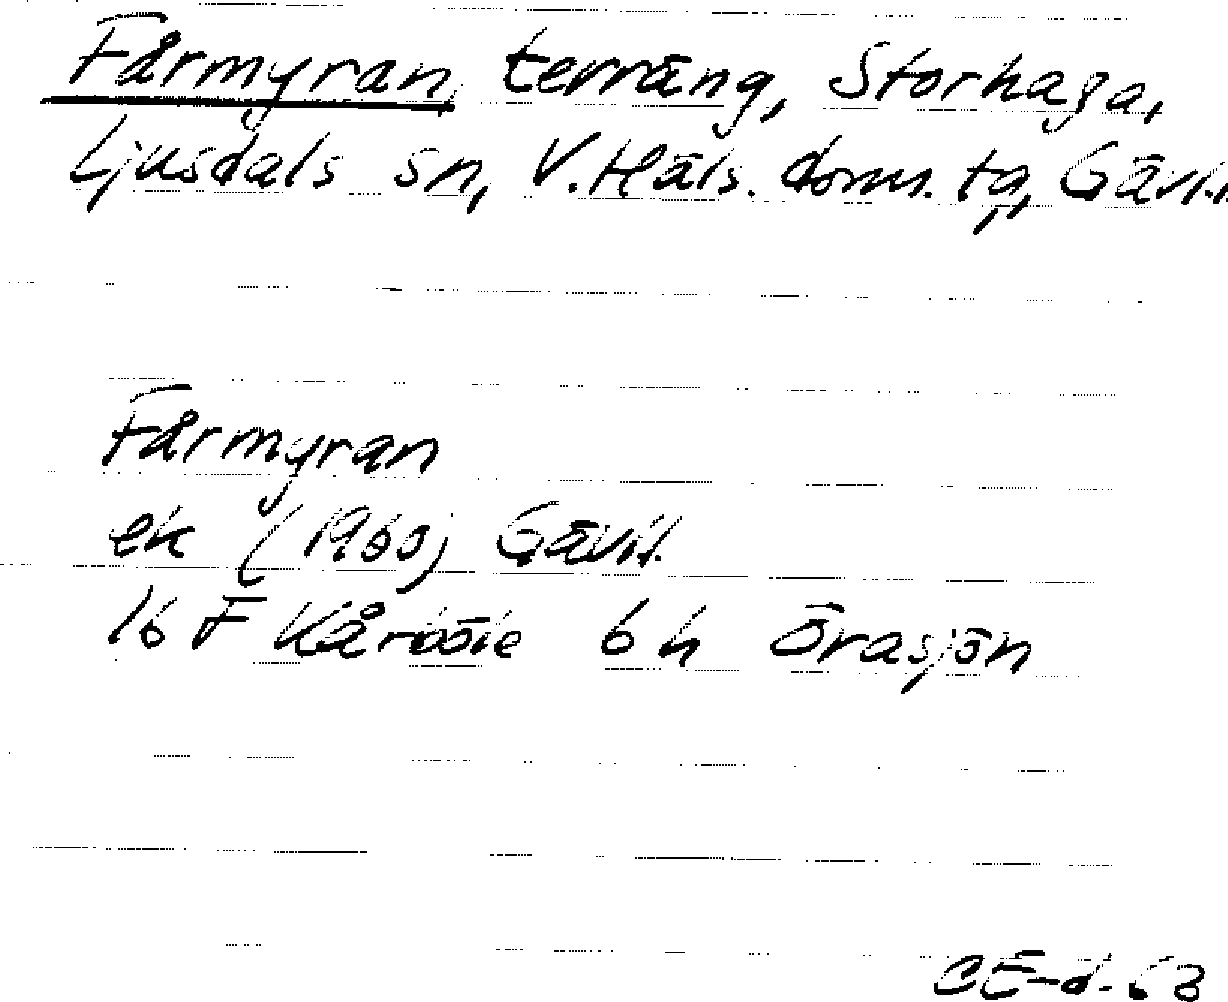 Fårmyran, terräng, Storhaga,
Ljusdals sn, V. Häls. doms. tg, Gävl.
Fårmyran
ek (1960) Gävl.
16 F Kårböle 6 h Örasjön